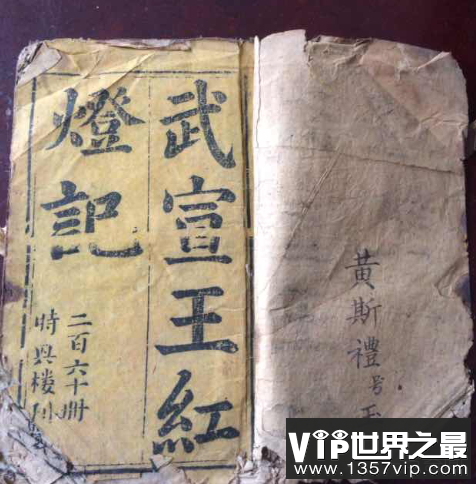 武宣王紅
燈記
二百六十册
時興樓刊
黃斯禮号
VIP世界之最
www.1357vip.com